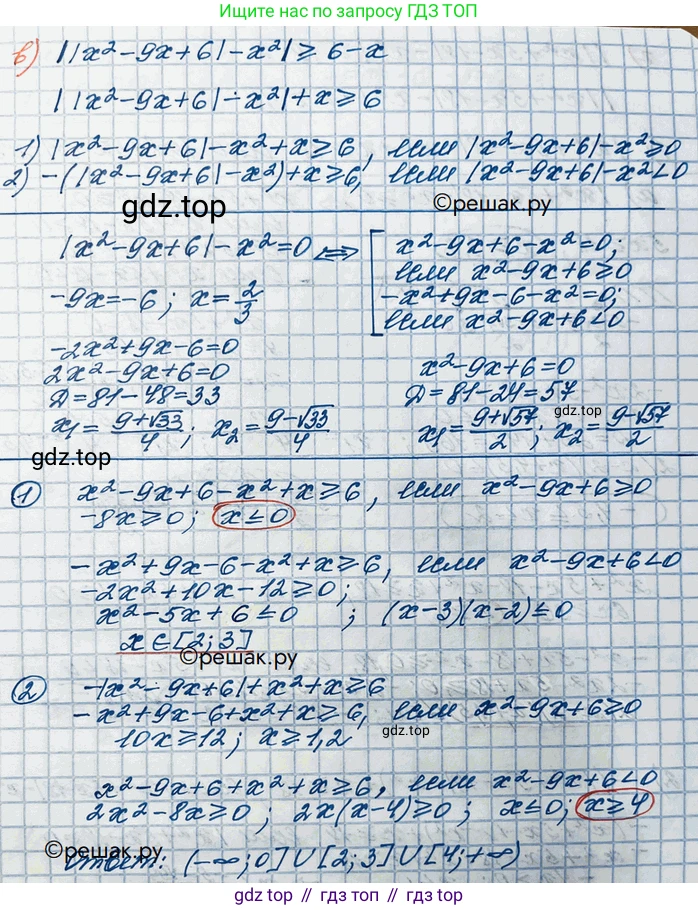 Больше решебников по запросу ГДЗ ТОП
в) ||x²-9x+6|-x²|≥6-x
||x²-9x+6|-x²|+x≥6
1) |x²-9x+6|-x²+x≥6, если |x²-9x+6|-x²≥0
2) -(|x²-9x+6|-x²)+x≥6, если |x²-9x+6|-x²<0
gdz.top ©решак.ру
|x²-9x+6|-x²=0 ⟺ [ x²-9x+6-x²=0;
если x²-9x+6≥0
-9x=-6; x=2/3
-x²+9x-6-x²=0;
если x²-9x+6<0
-2x²+9x-6=0
2x²-9x+6=0
Д=81-48=33
x₁=(9+√33)/4; x₂=(9-√33)/4
x²-9x+6=0
Д=81-24=57
gdz.top
x₁=(9+√57)/2; x₂=(9-√57)/2
gdz.top
① x²-9x+6-x²+x≥6, если x²-9x+6≥0
-8x≥0; x≤0
-x²+9x-6-x²+x≥6, если x²-9x+6<0
-2x²+10x-12≥0;
x²-5x+6≤0 ; (x-3)(x-2)≤0
x∈[2;3]
©решак.ру
② -|x²-9x+6|+x²+x≥6
-x²+9x-6+x²+x≥6, если x²-9x+6≥0
gdz.top
10x≥12; x≥1,2
x²-9x+6+x²+x≥6, если x²-9x+6<0
2x²-8x≥0; 2x(x-4)≥0; x≤0; x≥4
©решак.ру
Ответ: (-∞;0]∪[2;3]∪[4;+∞)
gdz top // гдз топ // gdz.top